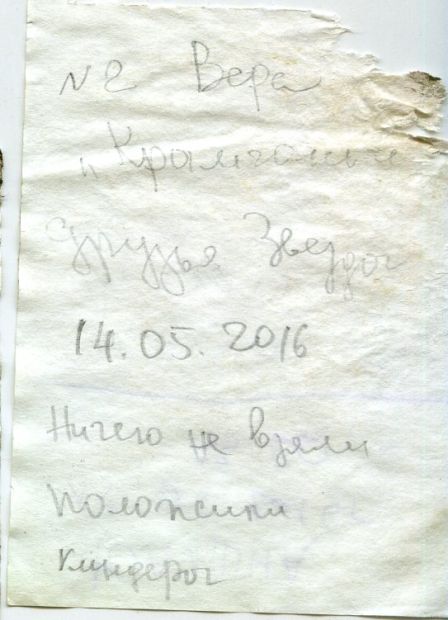 №2 Вера
и
друзья Звезда
14.05.2016
Ничего не взяли
положили
киндера